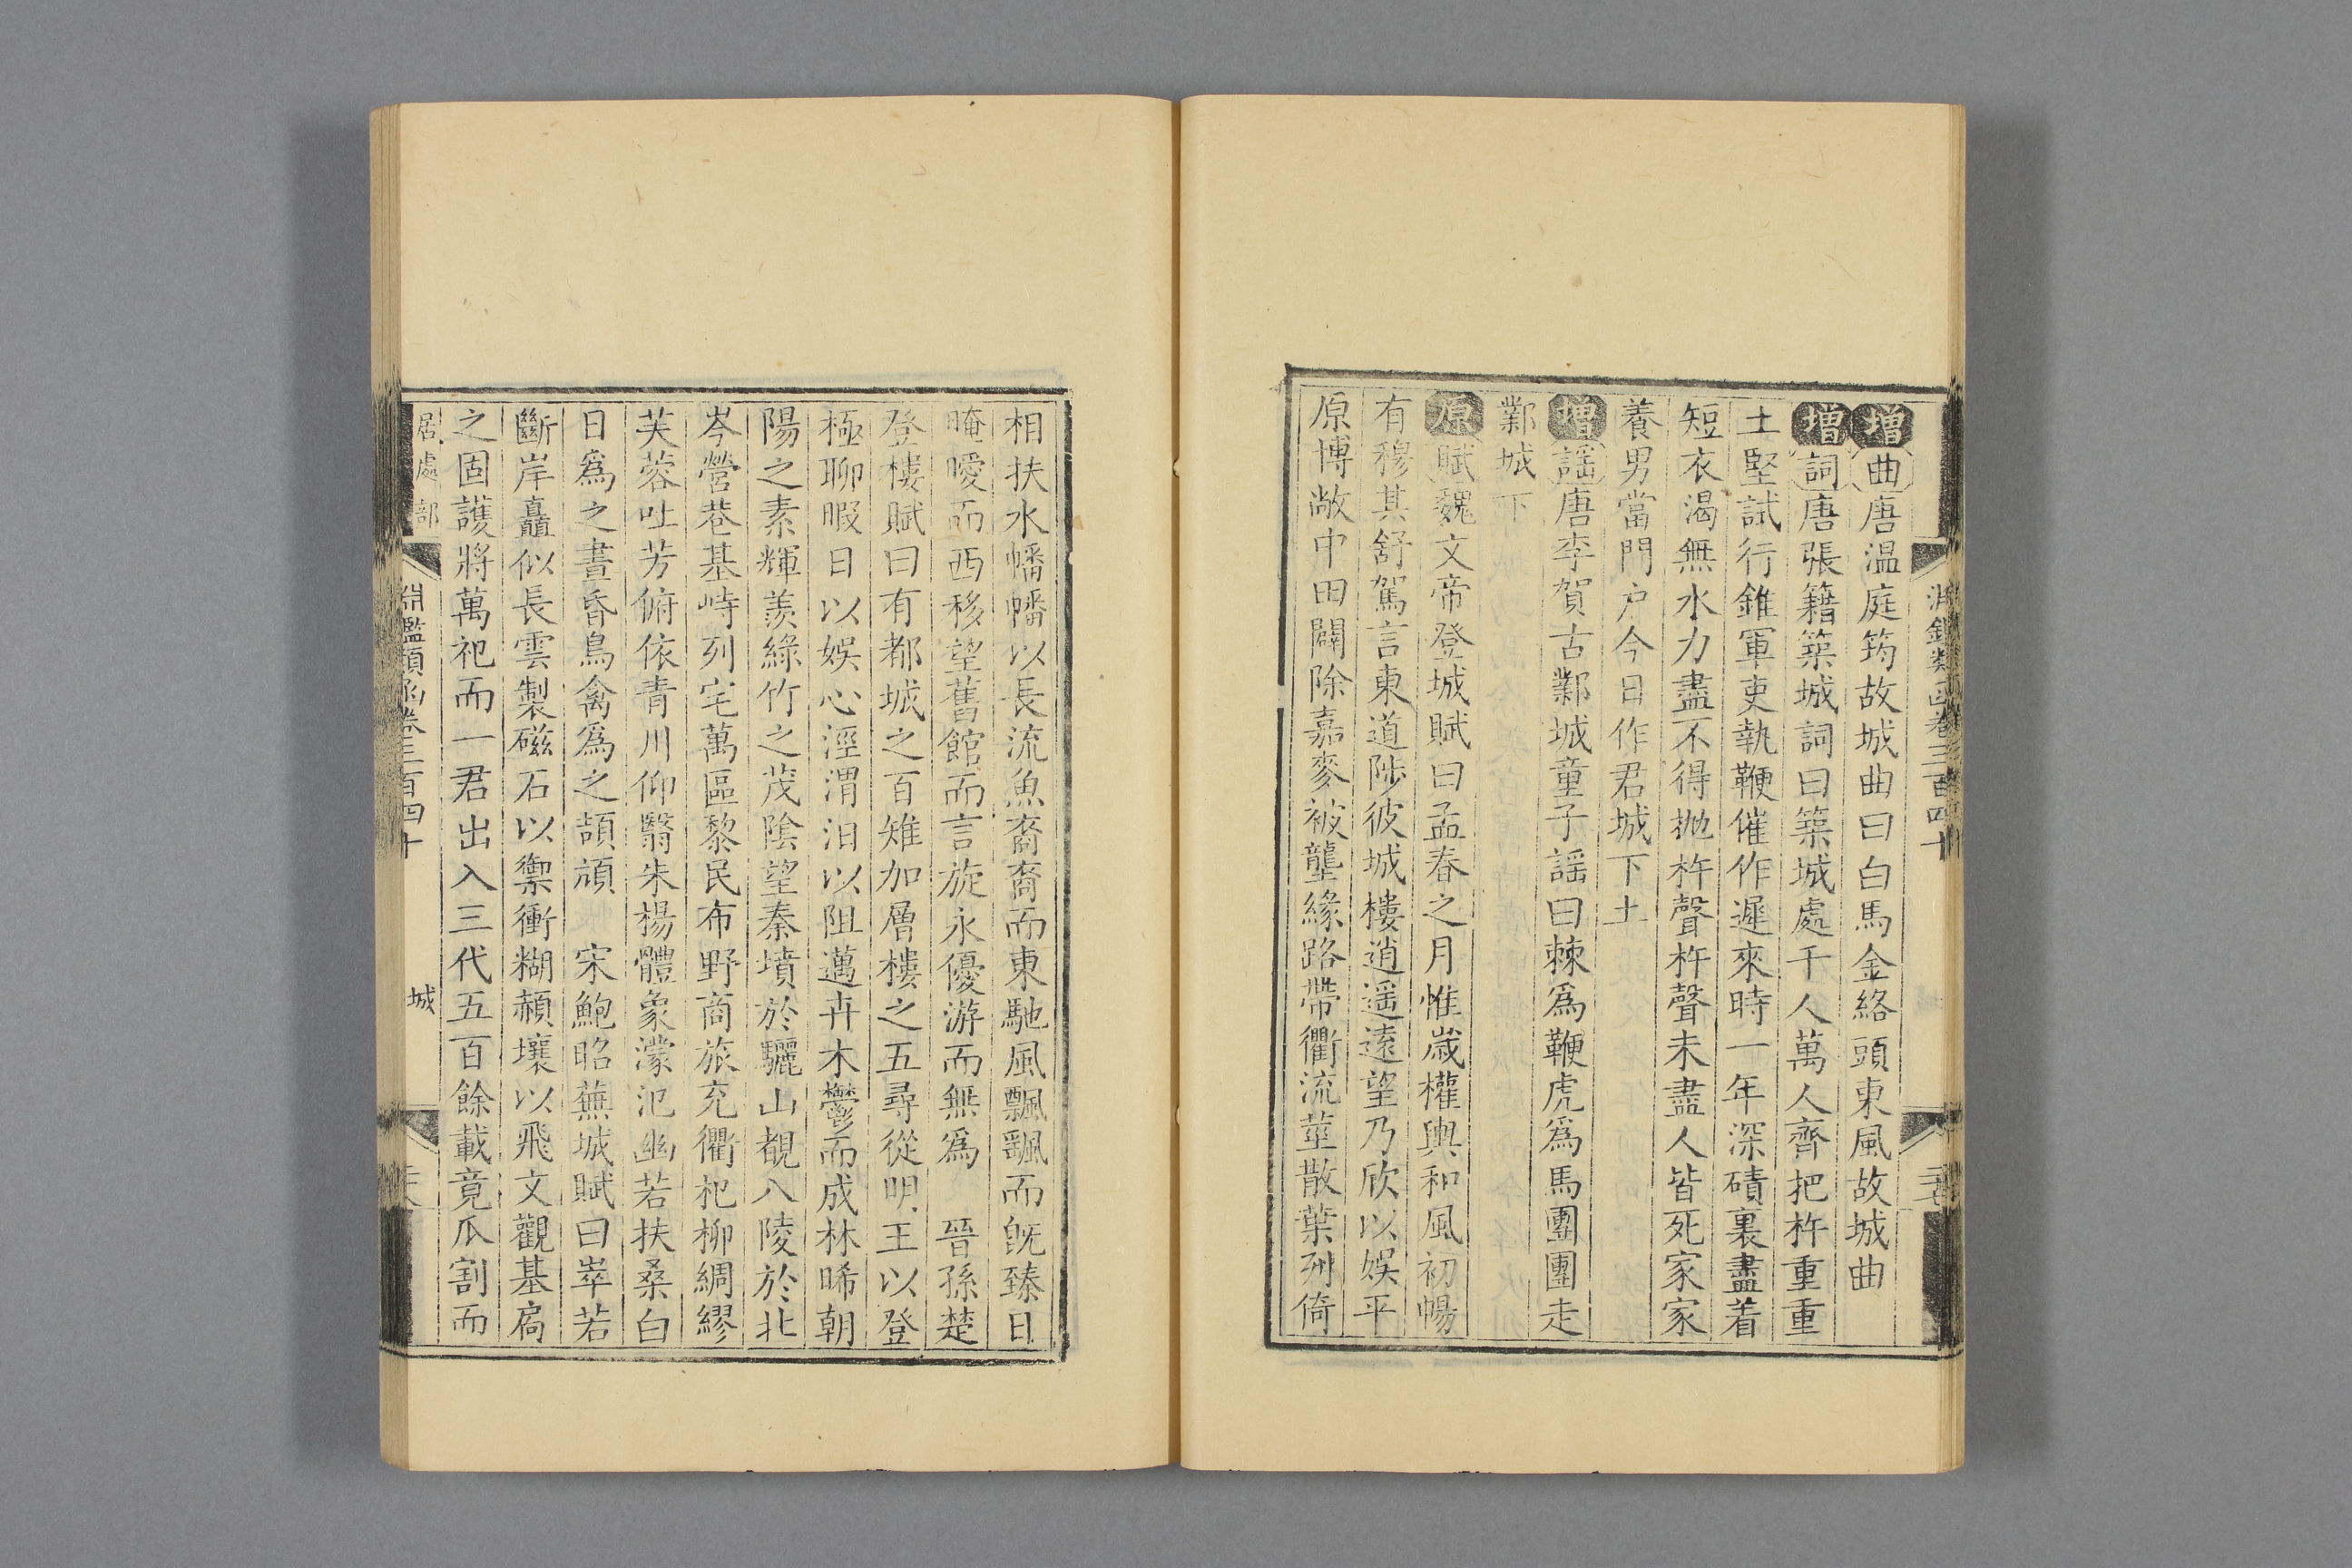 增曲唐溫庭筠故城曲曰白馬金絡頭東風故城曲
增詞唐張籍築城詞曰築城處千人萬人齊把杵重重
土堅試行錐軍吏執鞭催作遲來時一年深磧裏盡着
短衣渴無水力盡不得抛杵聲杵聲未盡人皆死家家
養男當門户今日作君城下土
增謡唐李賀古鄴城童子謡曰棘爲鞭虎爲馬團團走
鄴城下
原賦魏文帝登城賦曰孟春之月惟歲權輿和風初暢
有穆其舒駕言東道陟彼城樓逍遥遠望乃欣以娛平
原博敞中田闢除嘉麥被壟緣路帶衢流莖散葉列倚
相扶水幡幡以長流魚裔裔而東馳風飄飄而旣臻日
晻曖而西移望舊館而言旋永優游而無爲　晉孫楚
登樓賦曰有都城之百雉加層樓之五尋從明王以登
極聊暇日以娛心涇渭汨以阻邁卉木鬱而成林晞朝
陽之素輝羡綠竹之茂陰望秦墳於驪山覩八陵於北
岑營巷基峙列宅萬區黎民布野商旅充衢杞柳綢繆
芙蓉吐芳俯依青川仰翳朱楊體象濛汜幽若扶桑白
日爲之晝昏鳥禽爲之頡頏　宋鮑昭蕪城賦曰崒若
斷岸矗似長雲製磁石以禦衝糊赬壤以飛文觀基扃
之固護將萬祀而一君出入三代五百餘載竟瓜割而
居處部　淵鑑類函卷三百四十　城